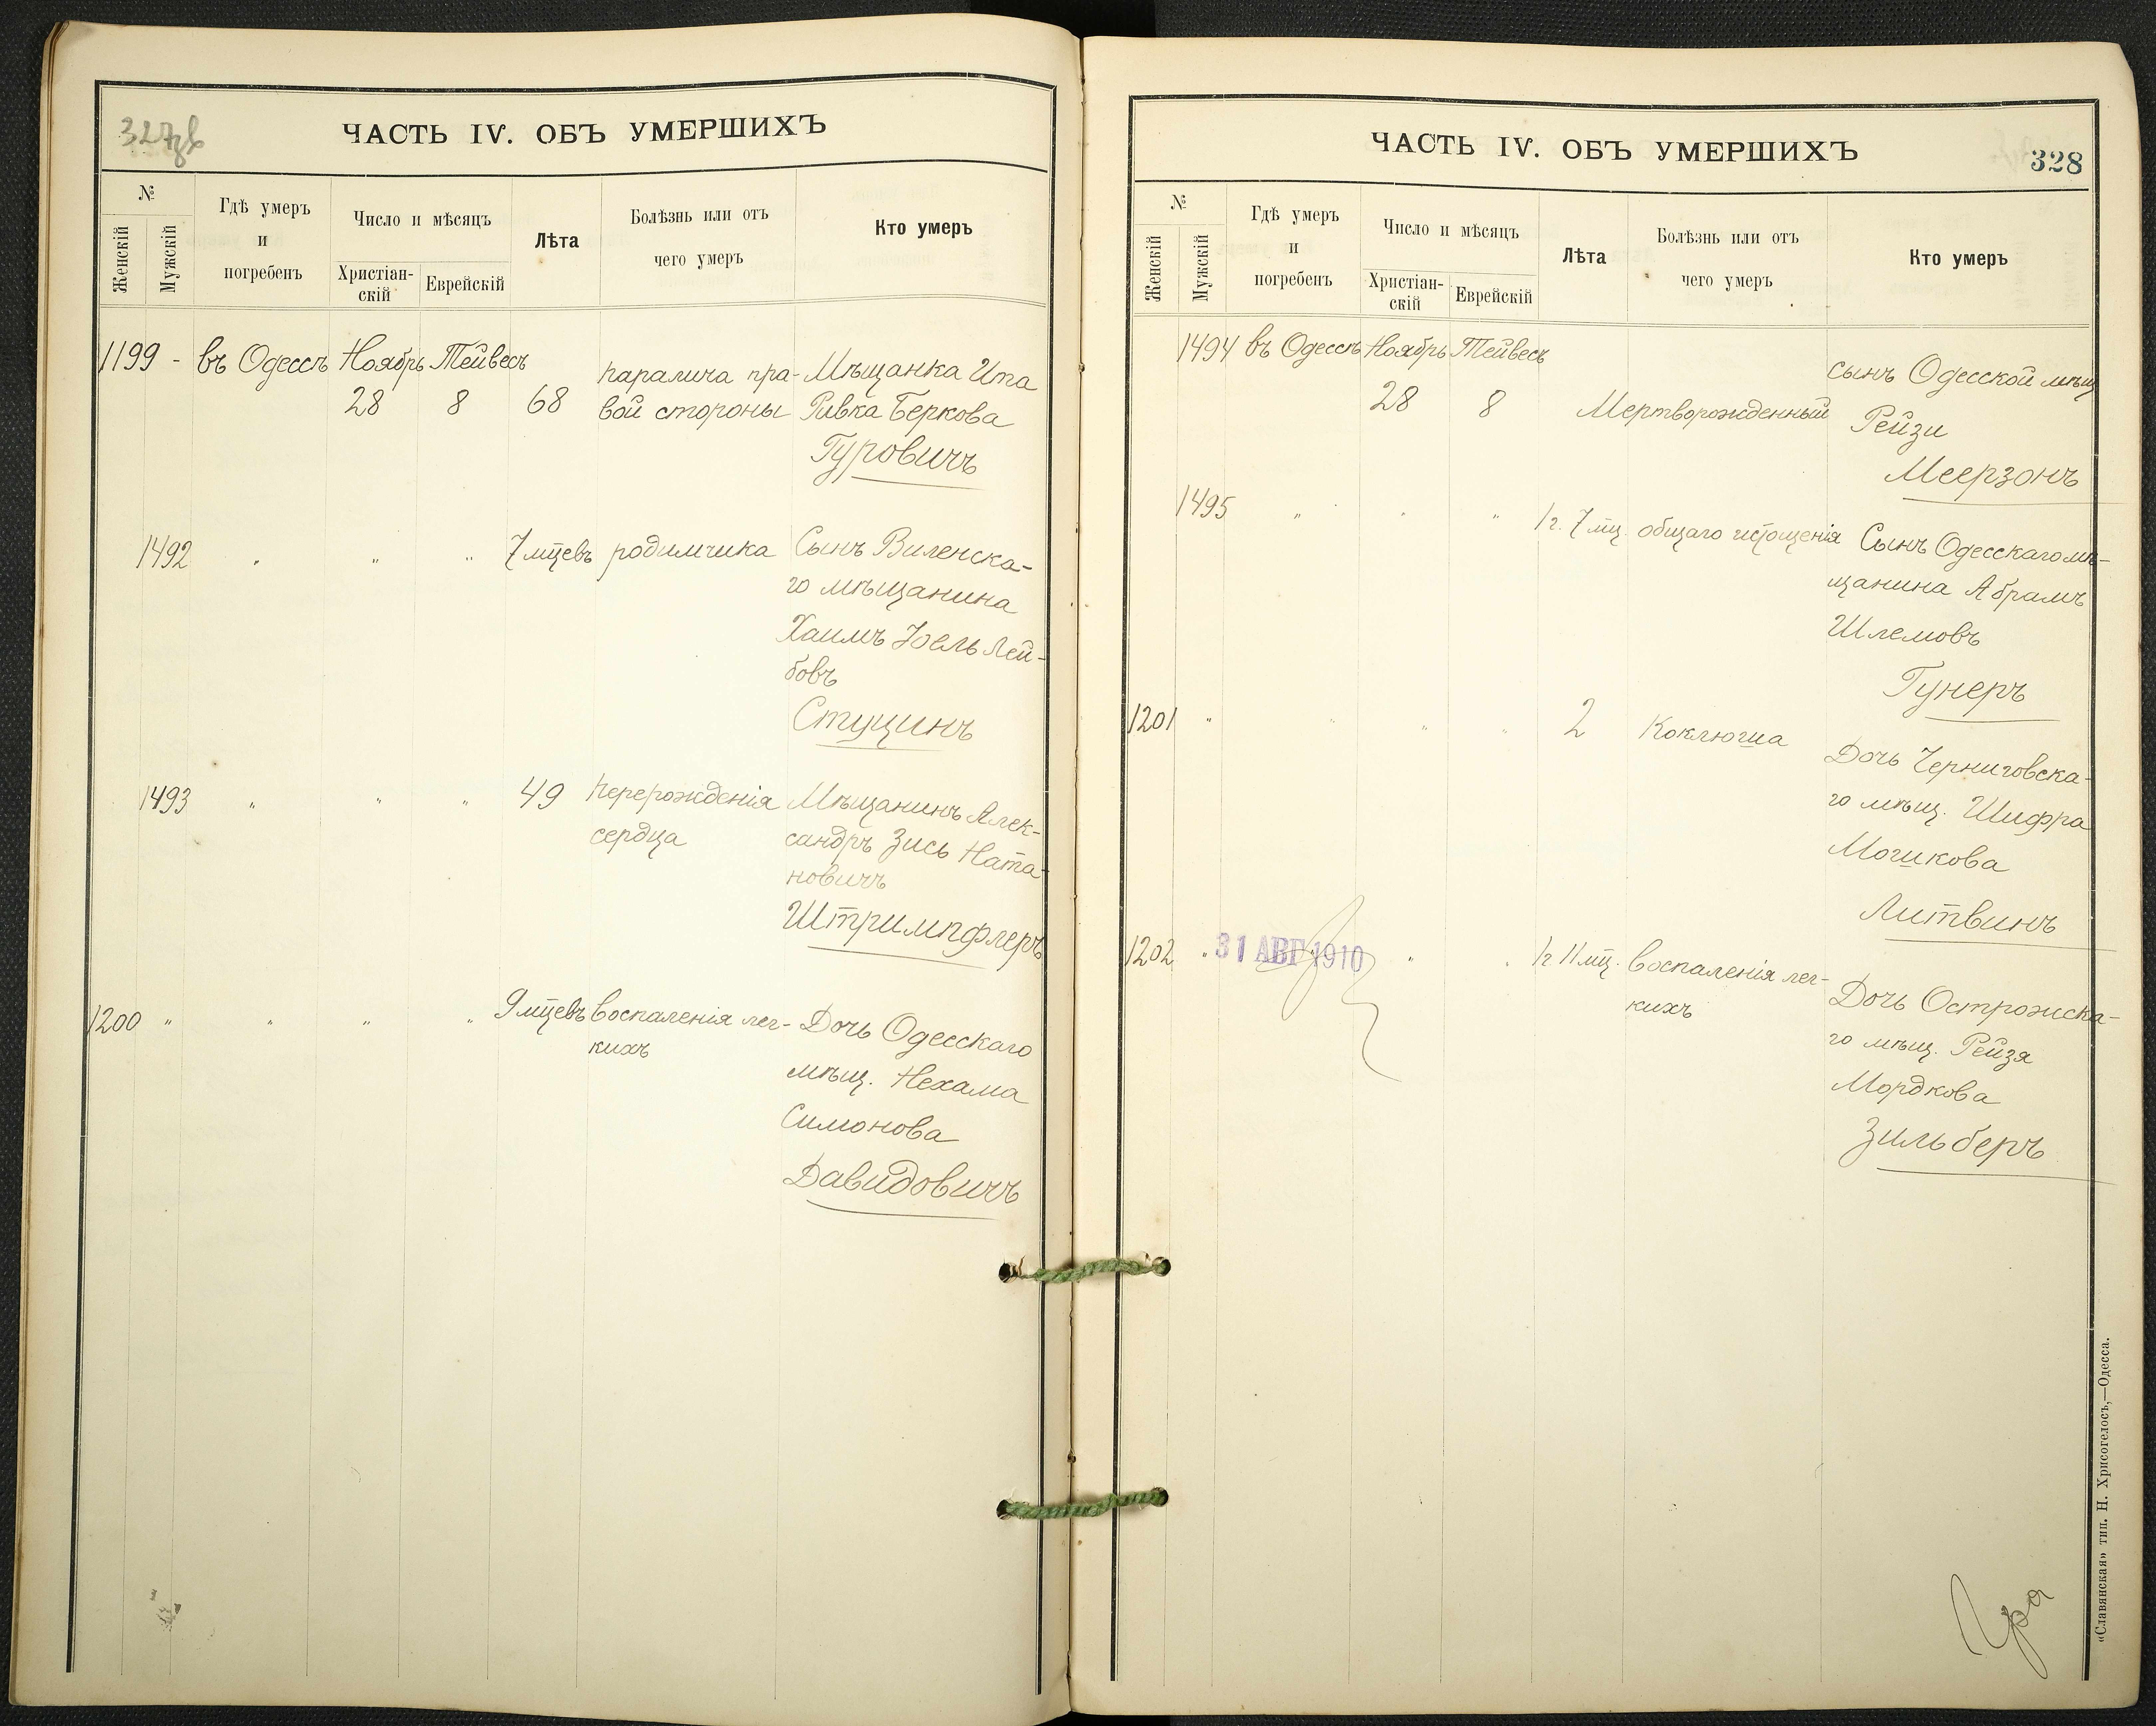 327об
ЧАСТЬ IV. ОБЪ УМЕРШИХЪ
№
Женскій
Мужскій
Гдѣ умеръ
и
погребенъ
Число и мѣсяцъ
Христіан-
скій
Еврейскій
Лѣта
Болѣзнь или отъ
чего умеръ
Кто умеръ
1199 - въ Одессѣ Ноябрь Тейвесъ
28 8 68
паралича пра-
вой стороны
Мѣщанка Ита
Ривка Беркова
Гуровичъ
1492 " " " 7 мцевъ родимчика
Сынъ Виленска-
го мѣщанина
Хаимъ Іоель Лей-
бовъ
Стущинъ
1493 " " " 49 перерожденія
сердца
Мѣщанинъ Алек-
сандръ Зись Ната-
новичъ
Штримпфлеръ
1200 " " " " 9 мцевъ воспаленія лег-
кихъ
Дочь Одесскаго
мѣщ. Нехама
Симонова
Давидовичъ
ЧАСТЬ IV. ОБЪ УМЕРШИХЪ
328
№
Женскій
Мужскій
Гдѣ умеръ
и
погребенъ
Число и мѣсяцъ
Христіан-
скій
Еврейскій
Лѣта
Болѣзнь или отъ
чего умеръ
Кто умеръ
1494 въ Одессѣ Ноябрь Тейвесъ
28 8 Мертворожденный
сынъ Одесской мѣщ
Рейзи
Меерзонъ
1495 " " " 1 г. 7 мц. общаго истощенія
Сынъ Одесскаго мѣ-
щанина Абрамъ
Шлемовъ
Гунеръ
1201 " " " " 2 Коклюша
Дочь Черниговска-
го мѣщ. Шифра
Мошкова
Литвинъ
1202 " 31 АВГ 1910 " " 1 г 11 мц. воспаленія лег-
кихъ
Дочь Острожска-
го мѣщ. Рейзя
Мордкова
Зильберъ
«Славянская» тип. Н. Хрисогелосъ,—Одесса.